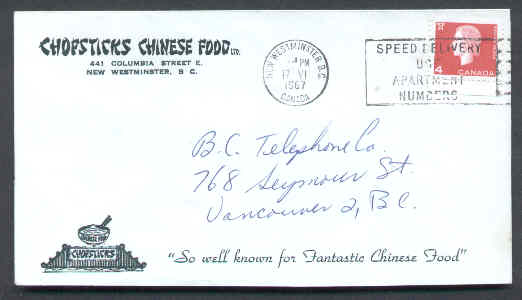 CHOPSTICKS CHINESE FOOD LTD.
441 COLUMBIA STREET E.
NEW WESTMINSTER, B C.
NEW WESTMINSTER B.C.
PM
17 VI
1967
CANADA
SPEED DELIVERY
USE
APARTMENT
NUMBERS
4 CANADA
B.C. Telephone Co.
768 Seymour St.
Vancouver 2, B.C.
CHINESE FOOD
CHOPSTICKS
"So well known for Fantastic Chinese Food"